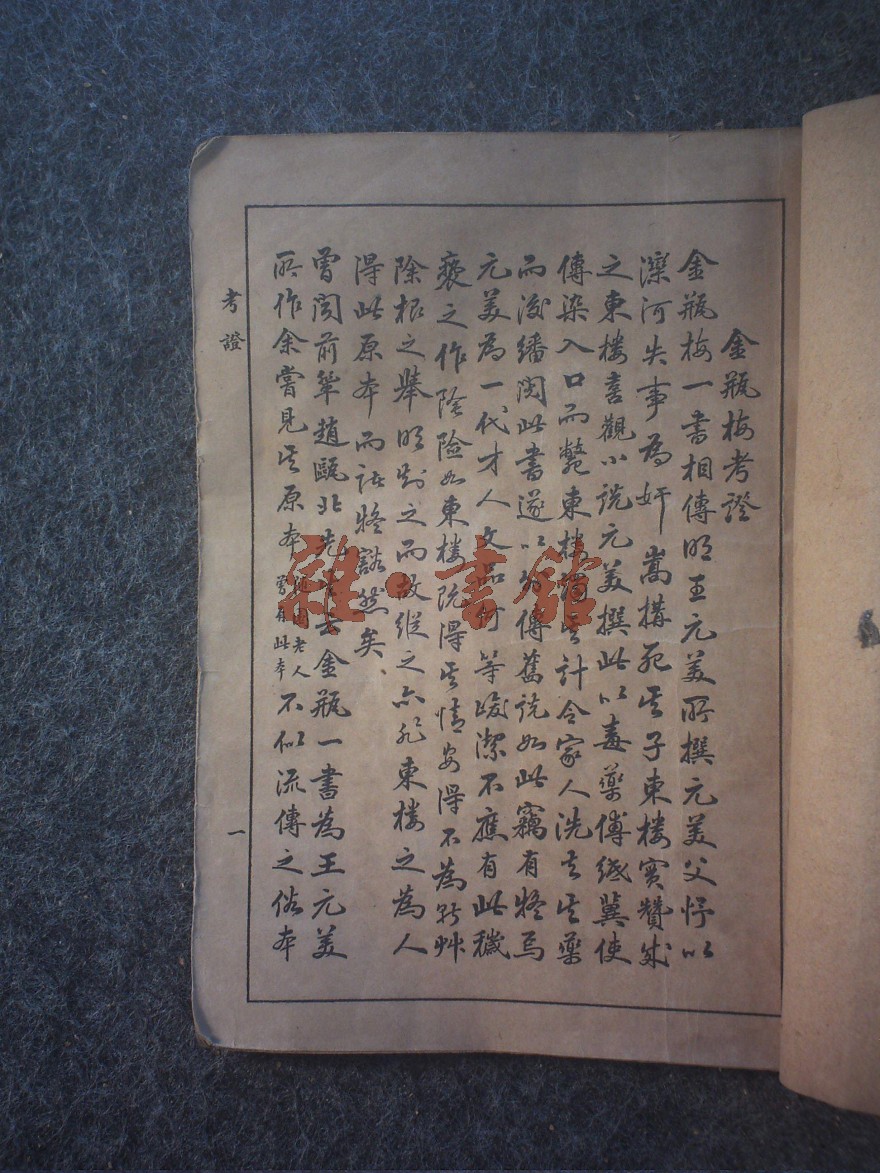 金瓶梅考證
金瓶梅一書相傳明王元美所撰元美父忬以
灤河失事為奸嵩搆死其子東樓實贊成
之東樓喜觀小說元美撰此以毒藥傅紙冀使
傳染入口而斃東樓燭其計令家人洗去其藥
而後繙閱此書遂以外傳舊說如此竊有疑焉
元美為一代才人文品何等峻潔不應有此穢
褻之作陰險如東樓既得其情安得不為斬艸
除根之舉明之而故縱之亦非東樓之為人
得此原本而諸疑豁然矣
曾聞前輩趙甌北先生云金瓶一書為王元美
所作余嘗見其原本隨園老人曾有此本不似流傳之俗本
考證
一
雜·書館